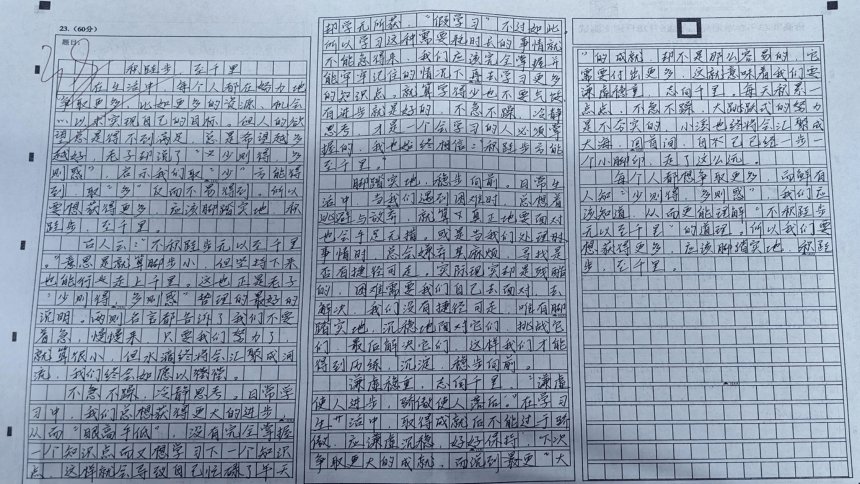 23.(60分)
题目:
48
积跬步，至千里
在生活中，每个人都在努力地
争取更多，比如更多的资源、机会
……以来实现自己的目标。但人的欲
望总是得不到满足，总是希望越多
越好，老子却说了“少则得，多
则惑”，启示我们取“少”方能得
到，取“多”反而不易得到。所以
要想获得更多，应该脚踏实地，积
跬步，至千里。
古人云：“不积跬步无以至千里
。”意思是就算脚步小，但坚持下来
也能行走上千里。这也正是老子
“少则得，多则惑”哲理的最好的
说明。两则名言都告诉了我们不要
着急，慢慢来，只要我们努力了，
就算很小，但水滴终将会汇聚成河
流，我们终会如愿以偿得。
不急不躁，冷静思考。日常学
习中，我们总想获得更大的进步，
从而“眼高手低”，没有完全掌握
一个知识点而又想学习下一个知识
点，这样就会导致自己忙碌了半天
却学无所获，“假学习”不过如此。
所以学习这种需要耗时去的事情就
不能急得来，我们应该完全掌握并
能牢牢记住的情况下再去学习更多
的知识点，就算学得少也不要气馁，
有进步就是好的，不急不躁，冷静
思考，才是一个会学习的人必须掌
握的，我也始终相信：“积跬步方能
至千里。”
脚踏实地，稳步向前。日常生
活中，当我们遇到困难时，总想着
逃避与放弃，就算真正地要面对
也会手足无措。或是当我们处理
事情时，总会嫌弃其麻烦，寻找是
否有捷径可走。实际现实却是残酷
的，困难需要我们自己去面对，去
解决，我们没有捷径可走，唯有脚
踏实地，沉稳地面对它们，挑战它
们，最后解决它们，这样我们才能
得到历练，沉淀，稳步向前。
谦虚稳重，志向千里。“谦虚
使人进步，骄傲使人落后。”在学习
生活中，取得成就后不能过于骄
傲，应谦虚沉稳，好好保持，下次
争取更大的成就，而说到最更“大
”的成就，却不是那么容易的，它
需要付出更多，这就意味着我们要
谦虚稳重，志向千里。每天积累一
点点，不急不躁，大跨越式的努力
是不夯实的，小溪也终将会汇聚成
大海，回首间，自己已经一步一
个小脚印，走了这么远。
每个人都想争取更多，而鲜有
人知“少则得，多则惑”，我们应
该知道，从而更能理解“不积跬步
无以至千里”的道理。所以我们要
想获得更多，应该脚踏实地，积跬
步，至千里。